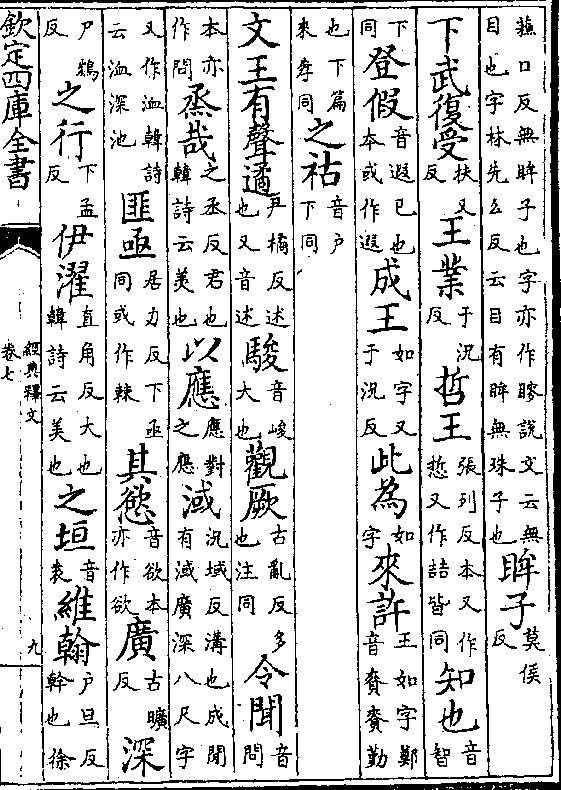 蘓口反無眸子也字亦作瞍說文云無
目也字林先幺反云目有眸無珠子也 眸子 莫侯
反
下武復受 扶又
反 王業 于況
反 哲王 張列反本又作
悊又作喆皆同 知也 音
智
下
同 登假 音遐已也
本或作遐 成王 如字又
于況反 此為 如
字 來許 王如字鄭
音賚賚勤
也下篇
來孝同 之祜 音户
下同
文王有聲遹 尹橘反述
也又音述 駿 音峻
大也 觀厥 古亂反多
也注同 令聞 音
問
本亦
作問 烝哉 之丞反君也
韓詩云美也 以應 應對
之應 淢 況域反溝也成間
有淢廣深八尺字
又作洫韓詩
云洫深池 匪亟 居力反下亟
同或作棘 其慾 音欲本
亦作欲 廣 古曠
反 深
尸鴆
反 之行 下孟
反 伊濯 直角反大也
韓詩云美也 之垣 音
袁 維翰 户旦反
幹也徐
欽定四庫全書
經典釋文
卷七
九